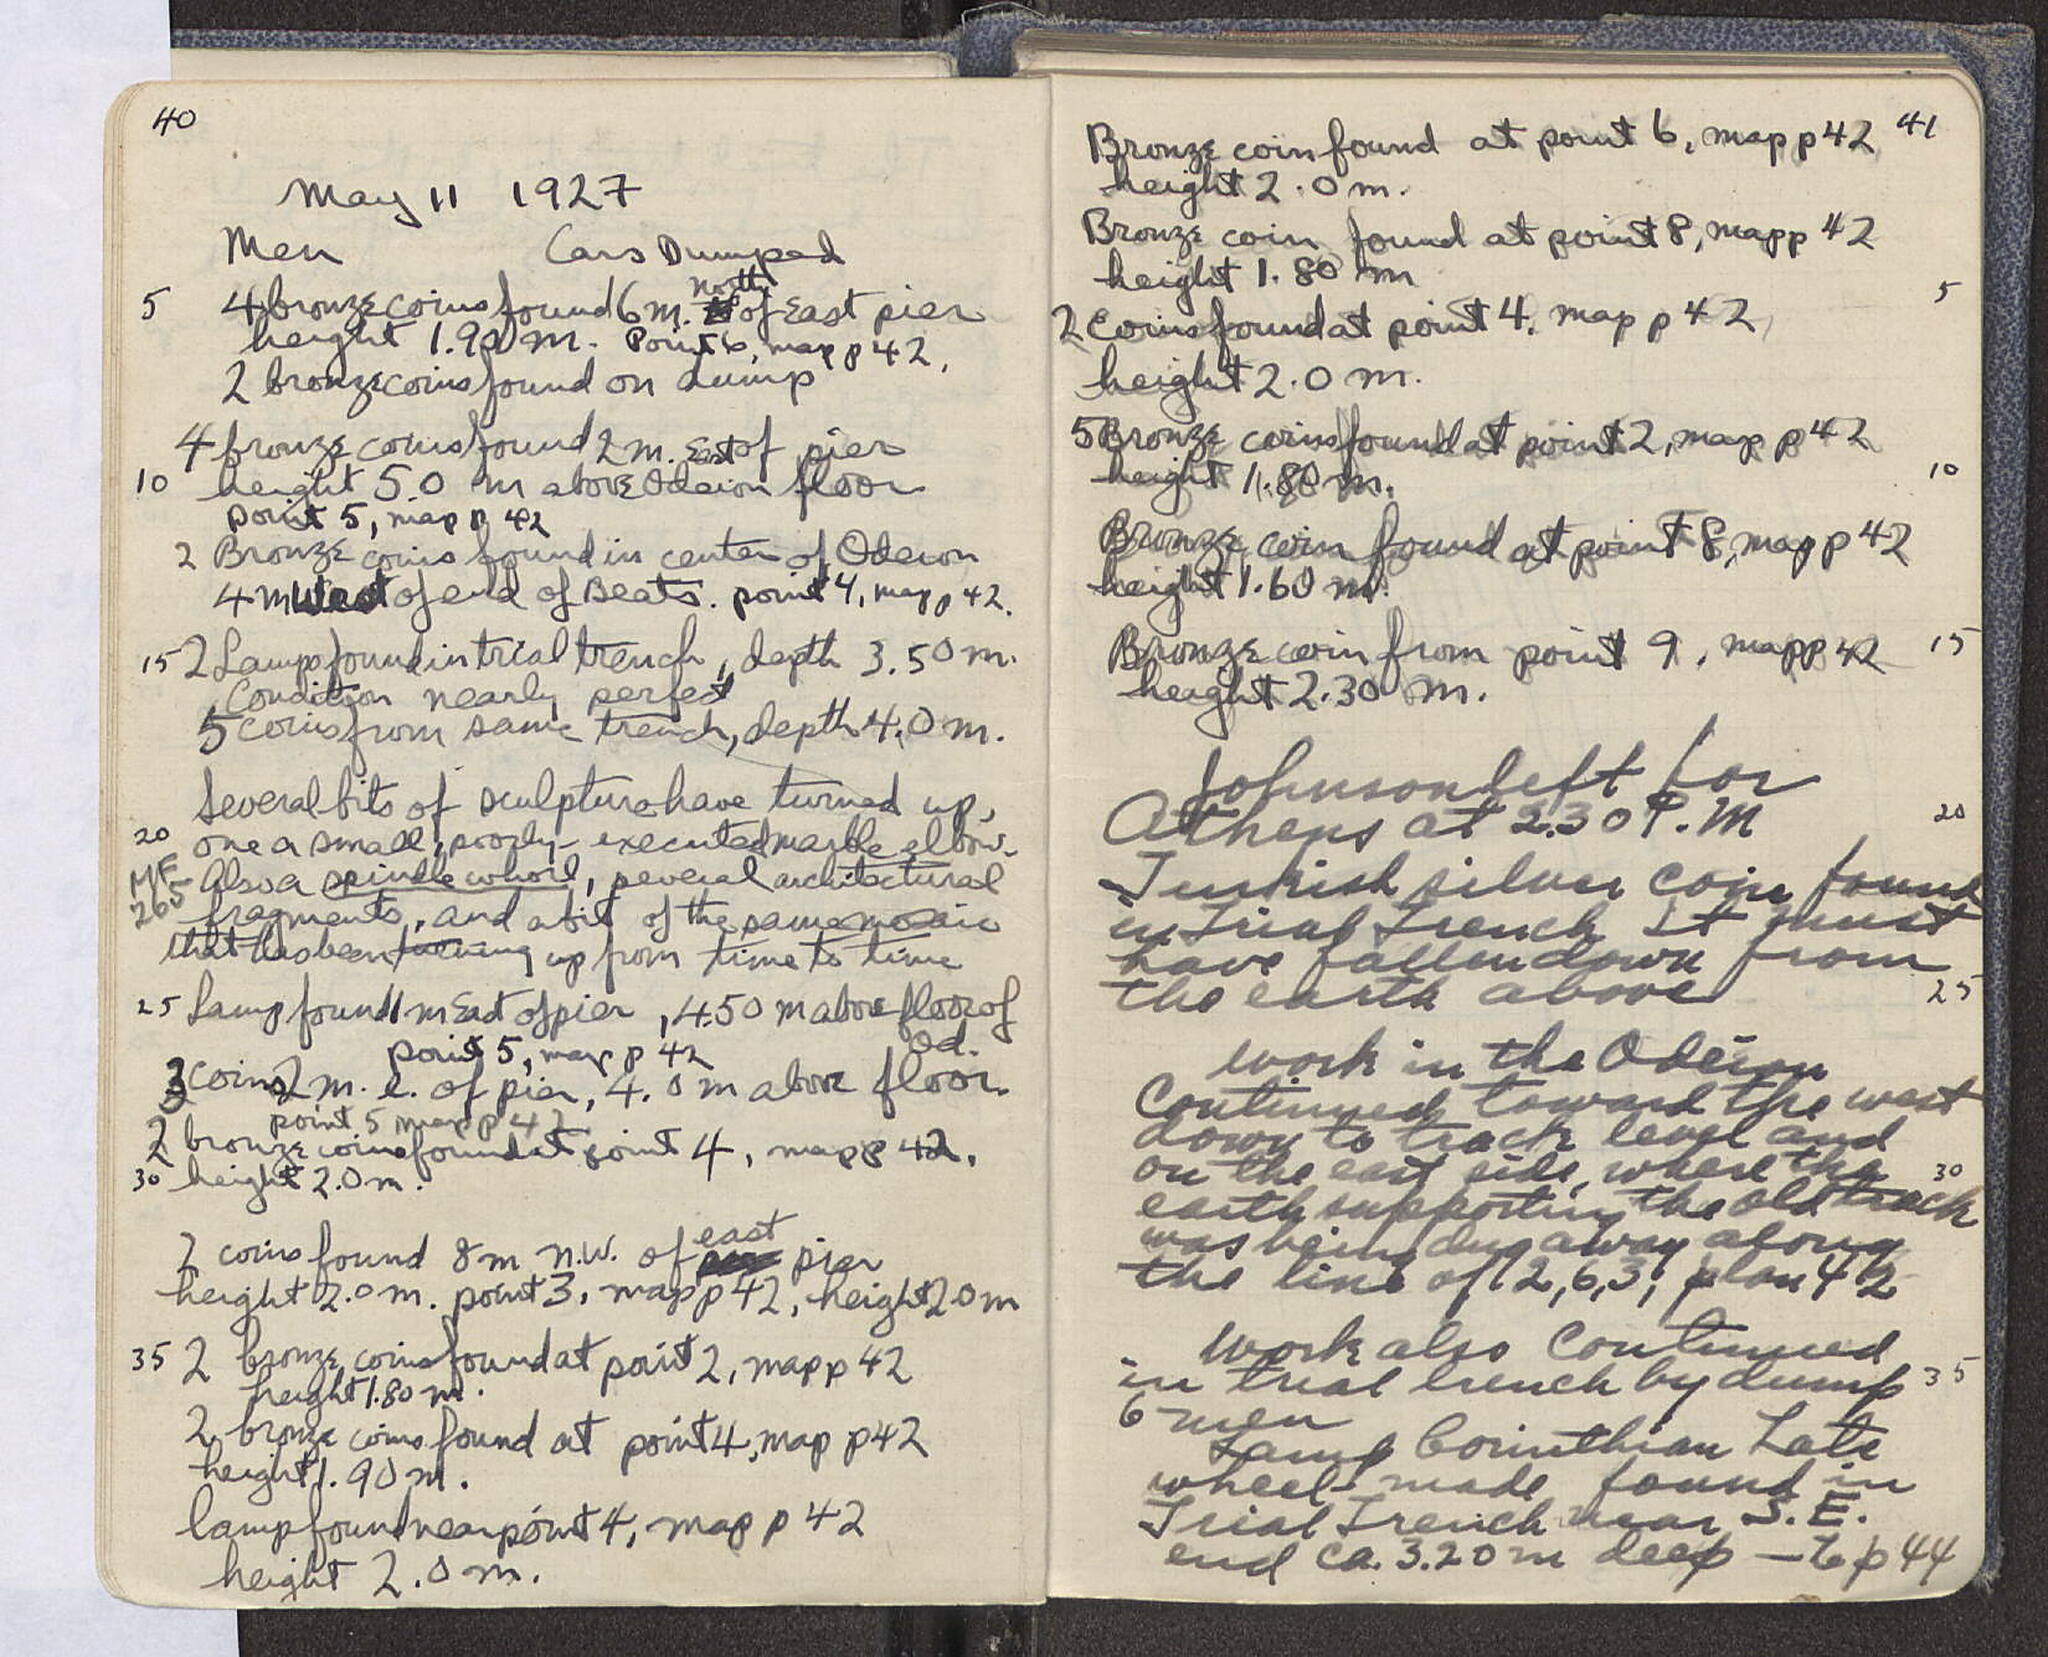 40
May 11 1927
Men Cars Dumped
5 4 bronze coins found 6 m. north of East pier
height 1.90 m. Point 6, map p 42,
2 bronze coins found on dump
4 bronze coins found 2 m. East of pier
10 height 5.0 m above Odeion floor
point 5, map p 42
2 Bronze coins found in center of Odeion
4 m West of end of Seats. point 4, map p 42.
15 2 Lamps found in trial trench, depth 3.50 m.
Condition nearly perfect
5 coins from same trench, depth 4.0 m.
Several bits of sculpture have turned up,
20 one a small, poorly-executed marble elbow.
MF 265 Also a spindle whorl, several architectural
fragments, and a bit of the same mosaic
that has been turning up from time to time
25 Lamp found 1 m East of pier, 4.50 m above floor of
Od.
point 5, map p 42
3 coins 2 m. e. of pier, 4.0 m above floor.
point 5 map p 42
2 bronze coins found at point 4, map p 42,
30 height 2.0 m.
2 coins found 8 m N.W. of east pier
height 2.0 m. point 3, map p 42, height 2.0 m
35 2 bronze coins found at point 2, map p 42
height 1.80 m.
2 bronze coins found at point 4, map p 42
height 1.90 m.
lamp found near point 4, map p 42
height 2.0 m.
41
Bronze coin found at point 6, map p 42
height 2.0 m.
Bronze coin found at point 8, map p 42
height 1.80 m
5
2 Coins found at point 4, map p 42
height 2.0 m.
5 Bronze coins found at point 2, map p 42
height 1.80 m. 10
Bronze coin found at point 8, map p 42
height 1.60 m.
Bronze coin from point 9, map p 42 15
height 2.30 m.
Johnson left for
Athens at 2.30 P.M 20
Turkish silver coin found
in Trial Trench It must
have fallen down from
the earth above 25
Work in the Odeion
Continued toward the west
down to track level and
on the east side, where the 30
earth supporting the old track
was being dug away along
the line of 12, 6, 3, plan 42
Work also Continued
in trial trench by dump 35
6 men
Lamp Corinthian Late
wheel-made found in
Trial Trench near S.E.
end ca. 3.20 m deep — to p 44